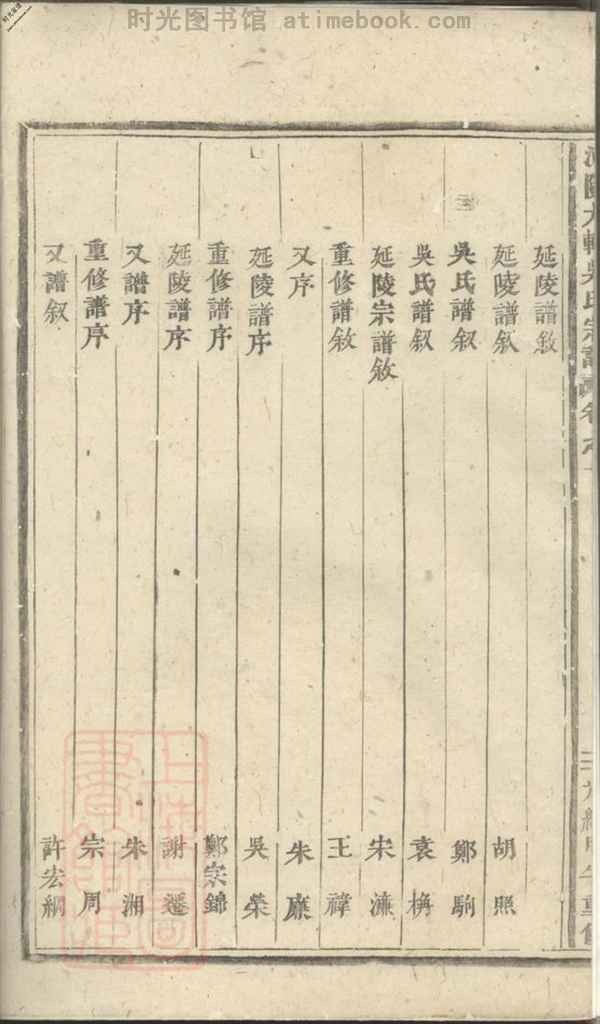 时光图书馆 atimebook.com
延陵譜敘
延陵譜叙 胡照
吳氏譜叙 鄭駒
吳氏譜叙 袁桷
延陵宗譜敘 宋濂
重修譜敘 王禕
又序 朱廉
延陵譜序 吳榮
重修譜序 鄭宗錦
延陵譜序 謝遷
又譜序 朱湘
重修譜序 宗周
又譜叙 許宏綱